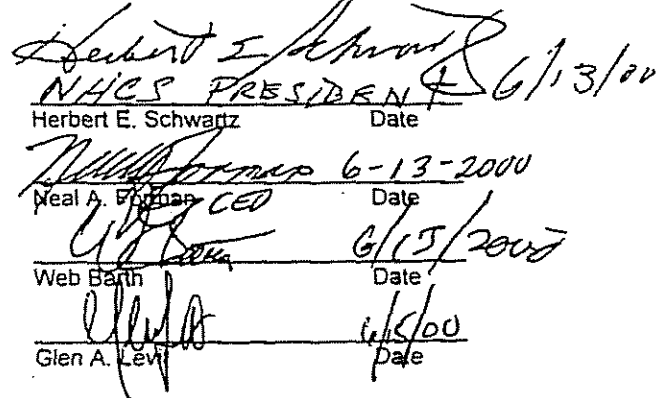 Herbert E Schwartz
NHCS PRESIDENT 6/13/00
Herbert E. Schwartz Date
Neal Forman 6-13-2000
Neal A. Forman CEO Date
6/15/2000
Web Barth Date
6/15/00
Glen A. Levit Date